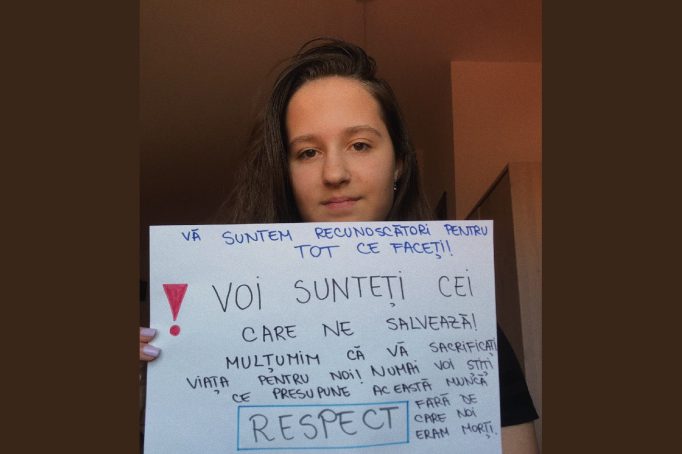 VĂ SUNTEM RECUNOSCĂTORI PENTRU
TOT CE FACEȚI!
VOI SUNTEȚI CEI
CARE NE SALVEAZĂ!
MULȚUMIM CĂ VĂ SACRIFICAȚI
VIAȚA PENTRU NOI! NUMAI VOI ȘTIȚI
CE PRESUPUNE ACEASTĂ MUNCĂ
FĂRĂ DE
CARE NOI
ERAM MORȚI.
RESPECT